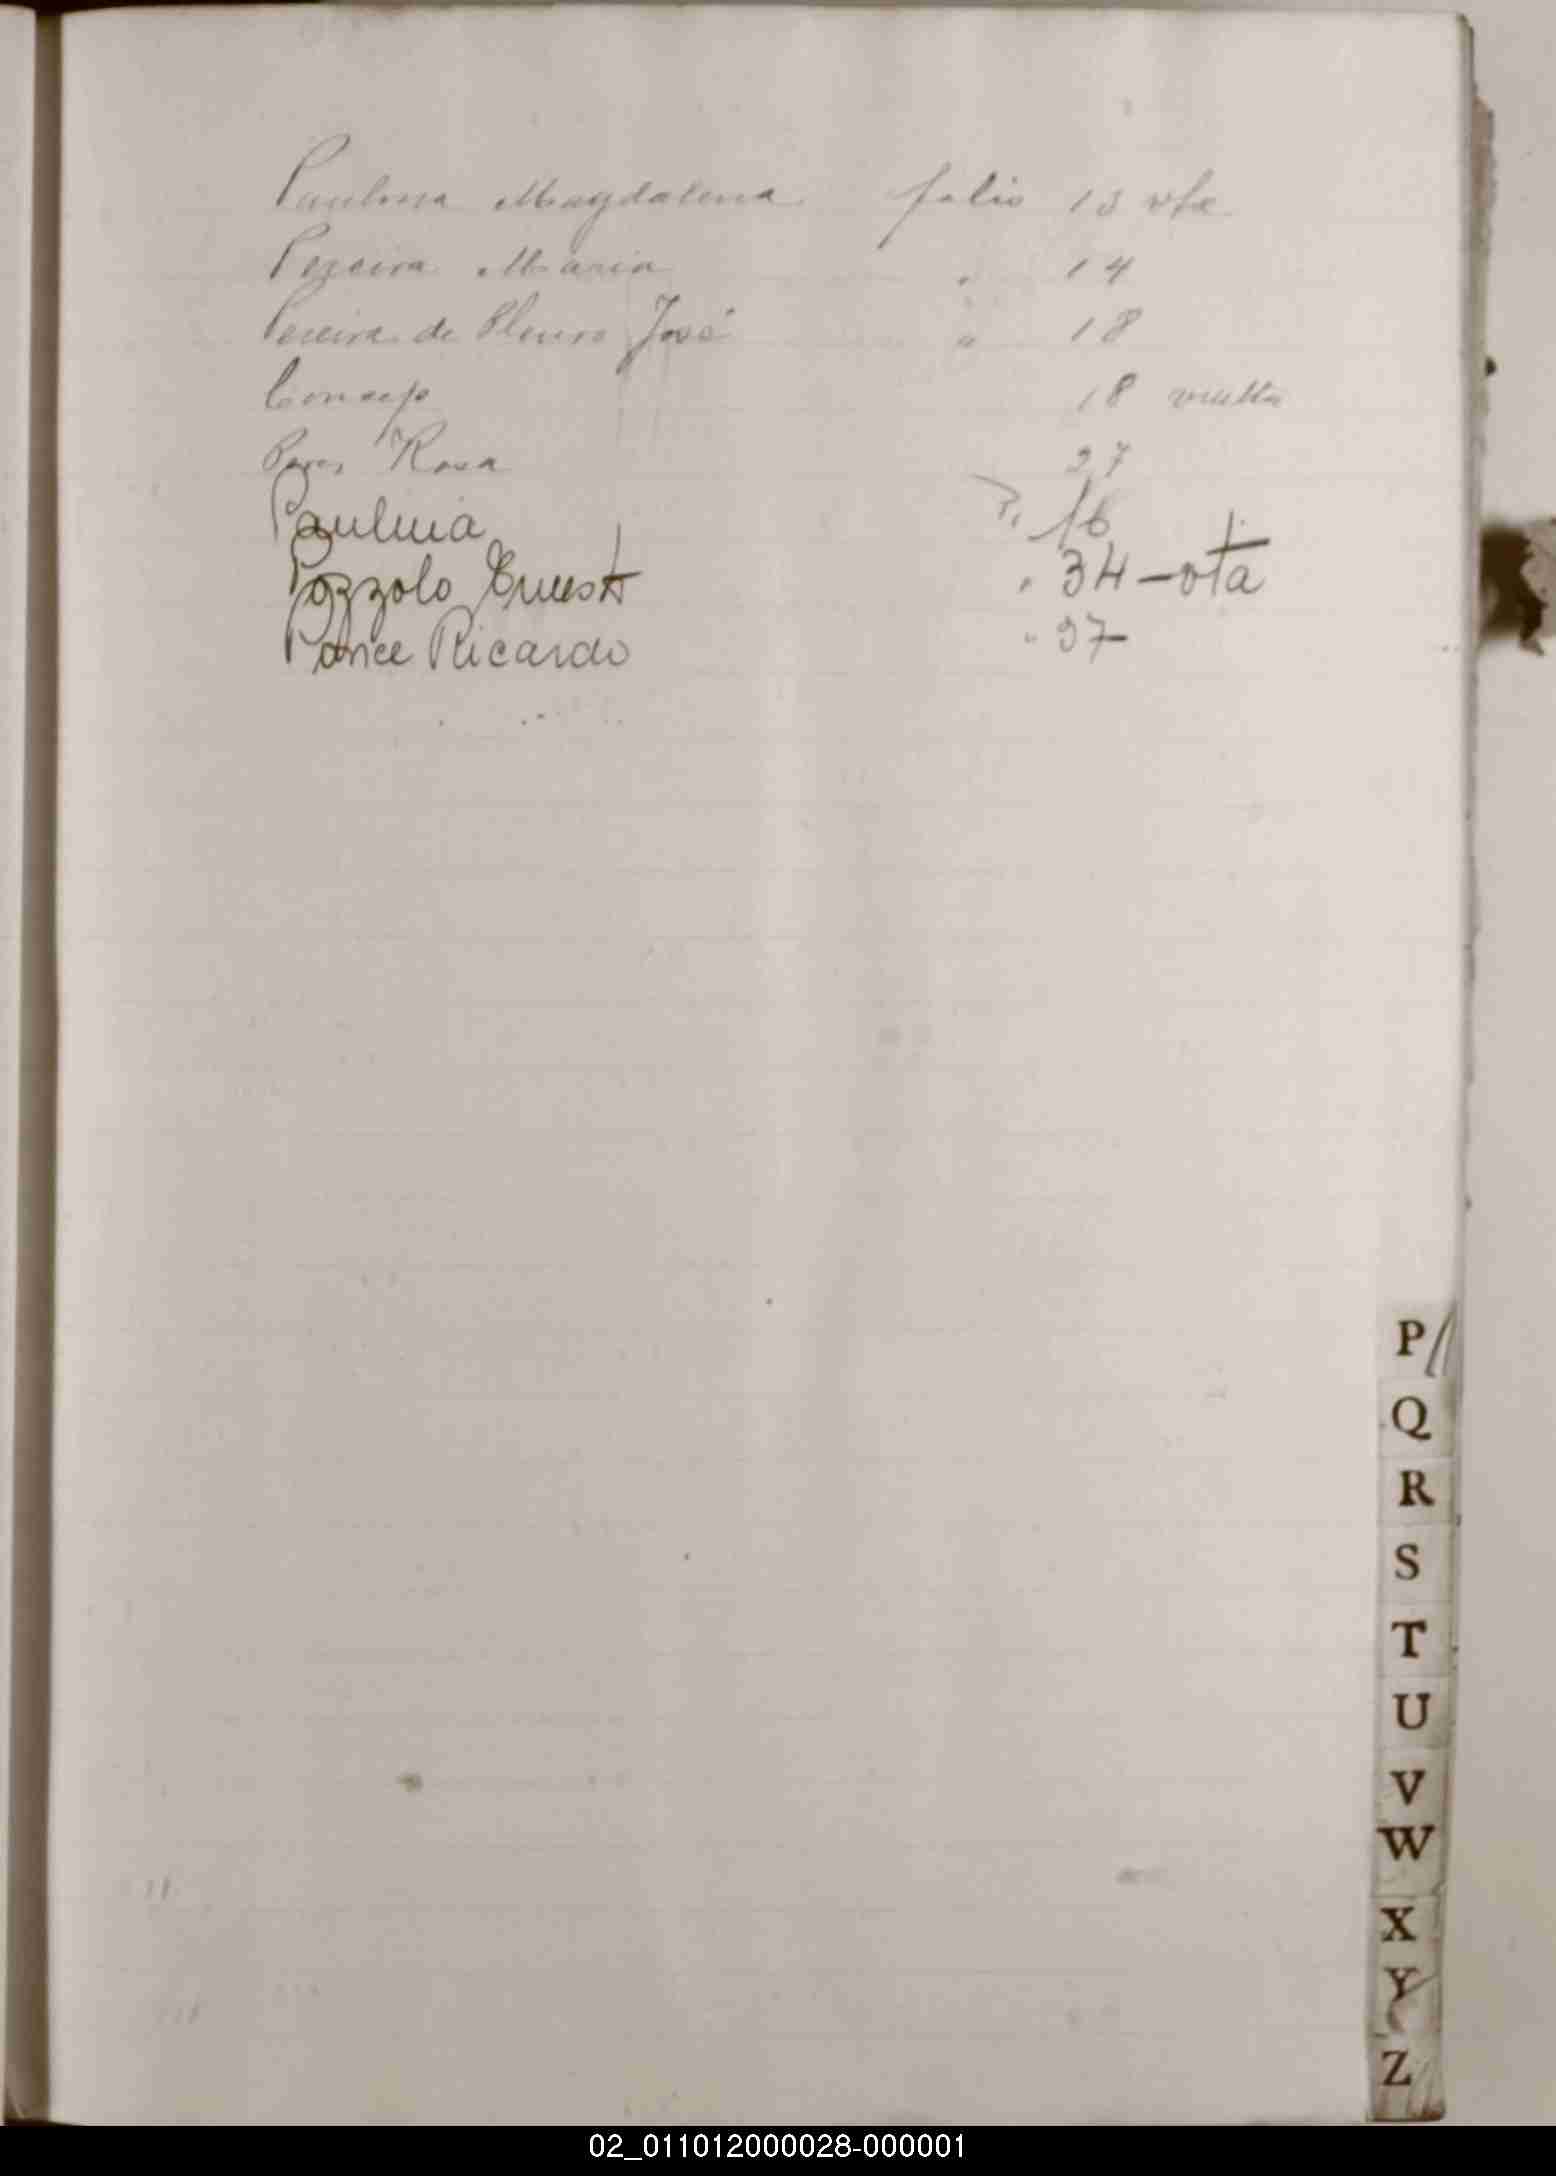 Paulina Magdalena folio 13 vta
Pereira Maria " 14
Pereira de José " 18
18 vuelta
Rosa 27
Paulina 16
Pozzolo Ernesto " 34 - vta
Ponce Ricardo " 37
P
Q
R
S
T
U
V
W
X
Y
Z
02_011012000028-000001